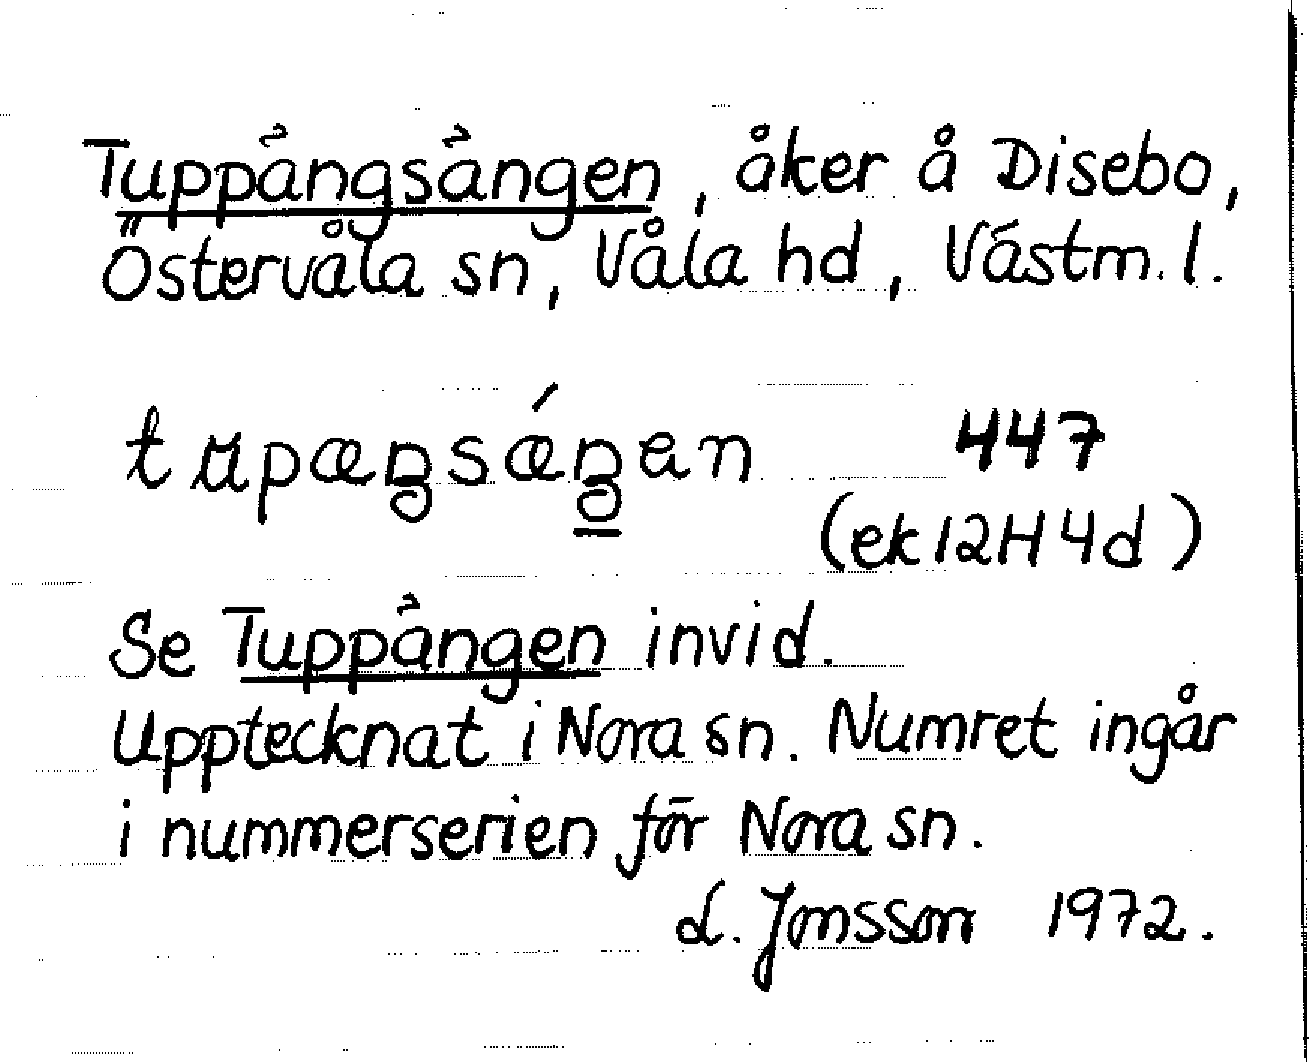 Tuppängsängen, åker å Disebo,
Östervåla sn, Våla hd, Västm. l.
447
(ek 12H 4d)
Se Tuppängen invid.
Upptecknat i Nora sn. Numret ingår
i nummerserien för Nora sn.
L. Jonsson 1972.